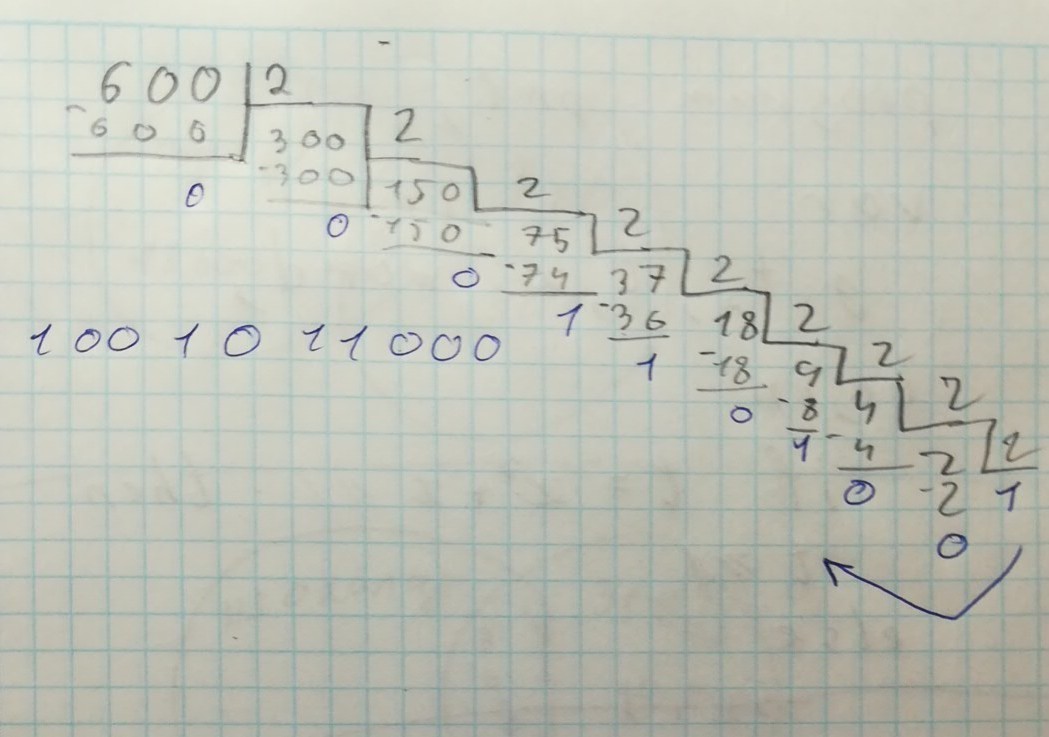 600 2
-600 300 2
0 -300 150 2
0 -150 75 2
0 -74 37 2
1 -36 18 2
1 -18 9 2
0 -8 4 2
1 -4 2 2
0 -2 1
0
1001011000